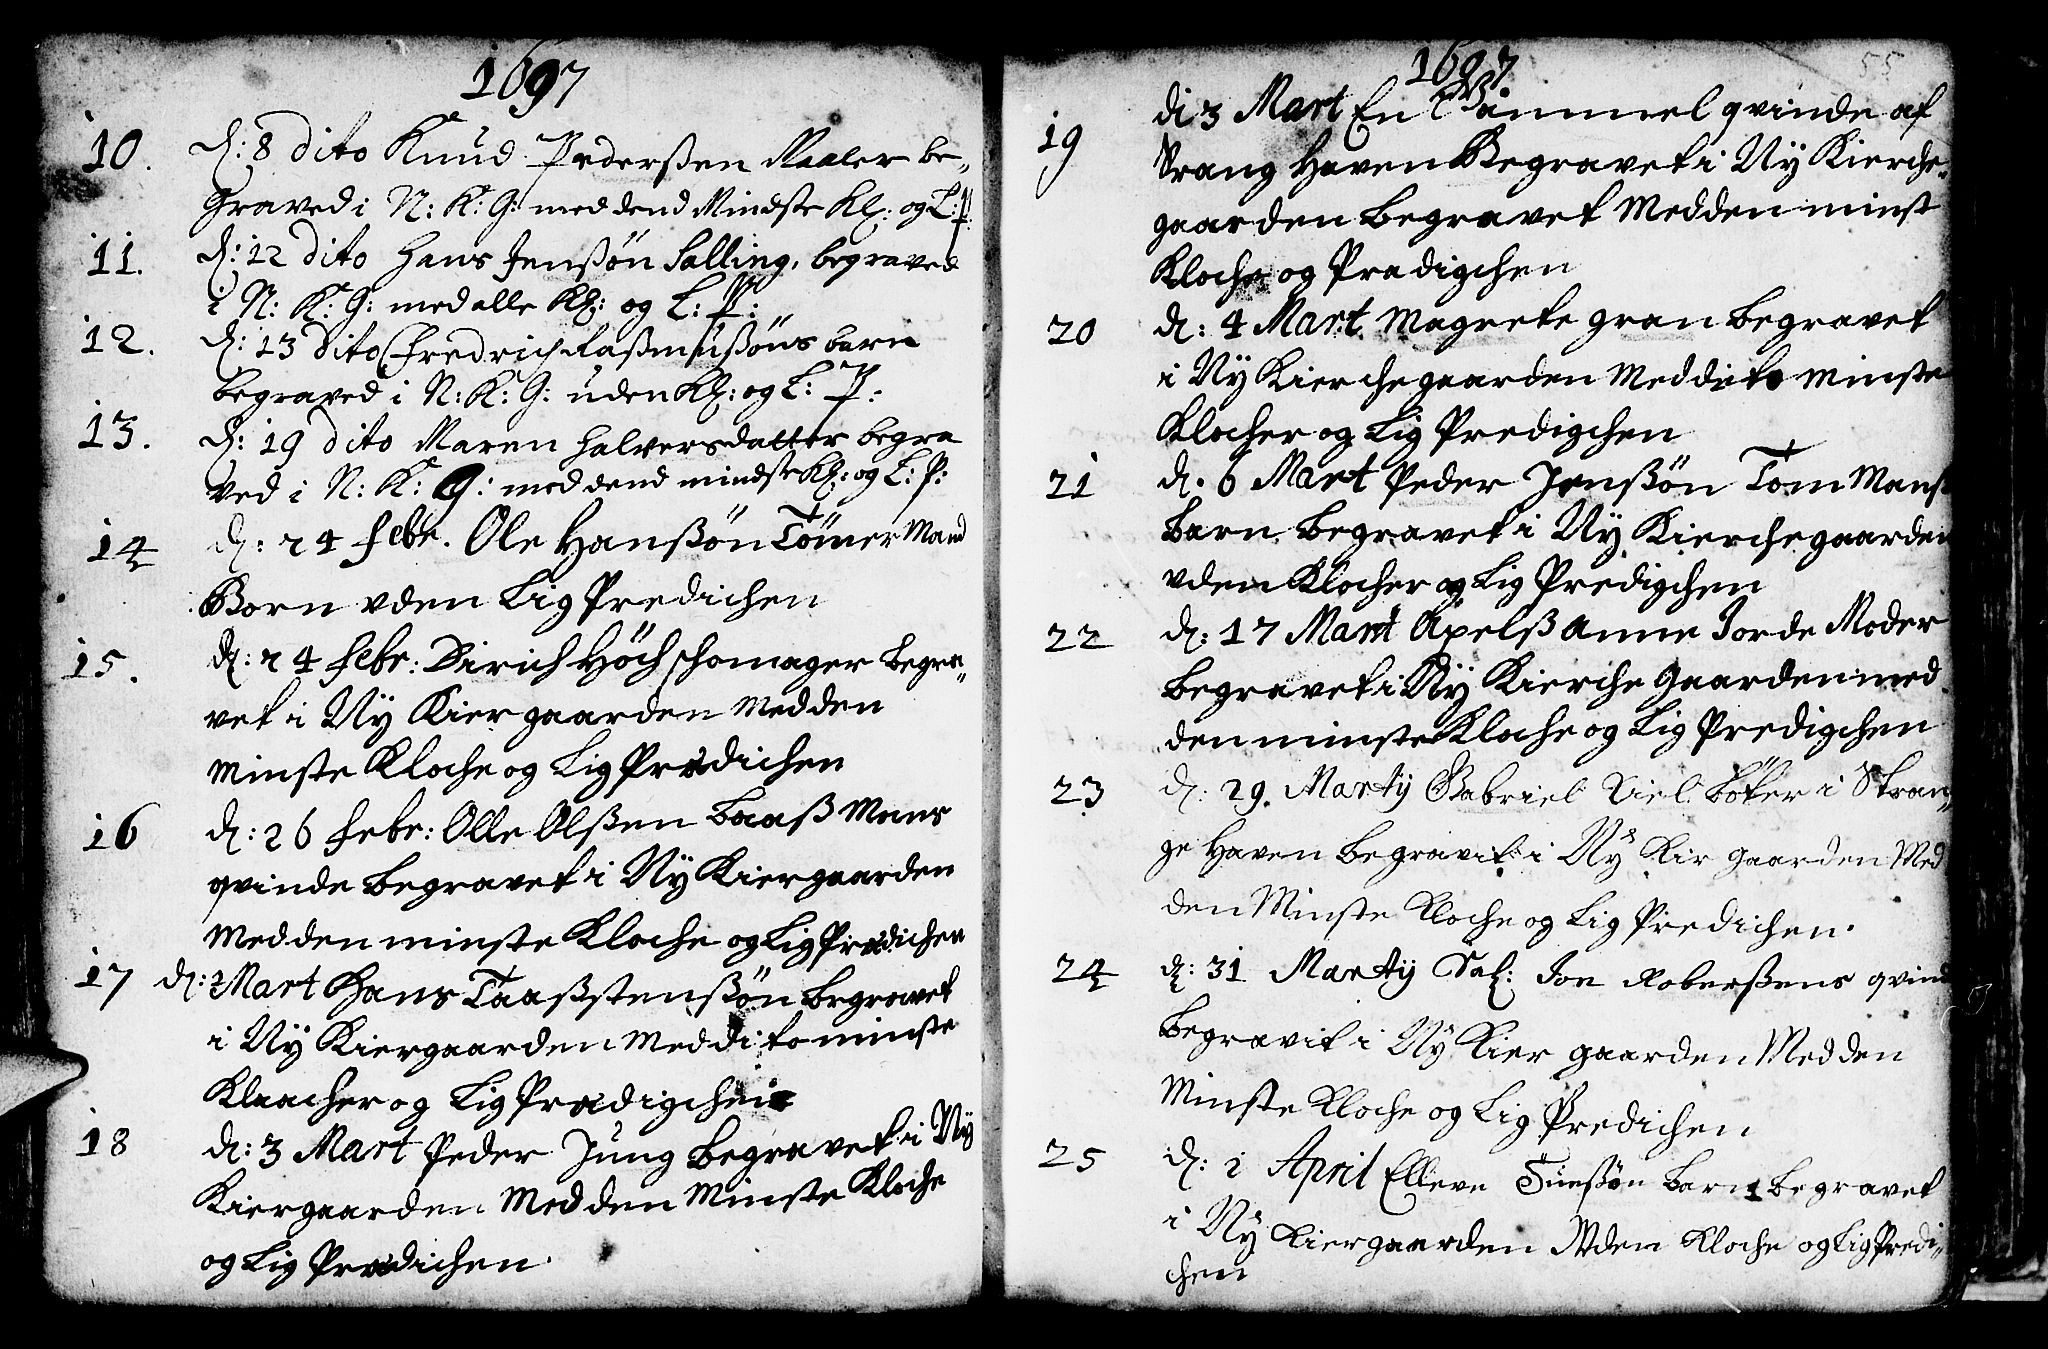 1697
10. d: 8 dito Knud Pederßen Maaler be-
Graved i N: K: G: med dend Mindste Kl: og L: P
11. d: 12 dito Hans Jenßøn Salling, begraved
i N: K: G: med alle Kl: og L: P:
12. d: 13 dito Fredrich Raßmusßøns barn
begraved i N: K: G: uden Kl: og L: P:
13. d: 19 dito Maren Halversdatter begra
ved i N: K: G: med dend mindste Kl: og L: P:
14 d: 24 Febr. Ole Hanßøn Tømer Mand
Born vden Lig Predichen
15. d: 24 Febr: Dirich Höch schomager Begra-
vet i Ny Kiergaarden Med den
Minste Kloche og Lig Prædichen
16 d: 26 Febr: Olle Olßen Baaß Mans
qvinde Begravet i Ny Kiergaarden
Med den minste Kloche og Lig Prædichen
17 d: 2 Mart Hans Taaßstenßøn Begravet
i Ny Kiergaarden Med dito minste
Klaacher og Lig Prædigchen
18 d: 3 Mart Peder Jung Begravet i Ny
Kiergaarden Med den Minste Kloche
og Lig Prædichen.
1697
55
19 di 3 Mart En Gammel qvinde af
Strang Haven Begravet i Ny Kierche-
gaarden Begravet Med den minst
Kloche og Predigchen
20 d: 4 Mart Magrete gran Begravet
i Ny Kierchegaarden Med dito Minste
Klocher og Lig Predigchen
21 d. 6 Mart Peder Jenßøn Tom Mans
Barn Begravet i Ny Kierchegaarden
vden Klocher og Lig Predigchen
22 d: 17 Mart Apelß Anne Jorde Moder
Begravet i Ny Kierche Gaarden med
den minste Kloche og Lig Predigchen
23 d: 29. Martij Gabriel Kiel Bøker i Stran-
ge Haven Begravit i Ny Kir gaarden Med
den Minste Kloche og Lig Predichen.
24 d: 31 Martij Sal: Jon Roberßens qvind
Begravit i Ny Kier gaarden Med den
Minste Kloche og Lig Predichen
25 d: 1 April Elleve Barn 1 Begravet
i Ny Kiergaarden Vden Kloche og Lig Predi-
chen